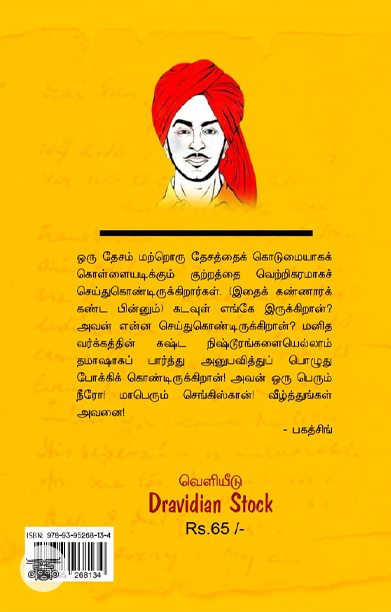 ஒரு தேசம் மற்றொரு தேசத்தைக் கொடுமையாகக்
கொள்ளையடிக்கும் குற்றத்தை வெற்றிகரமாகச்
செய்துகொண்டிருக்கிறார்கள். (இதைக் கண்ணாரக்
கண்ட பின்னும்) கடவுள் எங்கே இருக்கிறான்?
அவன் என்ன செய்துகொண்டிருக்கிறான்? மனித
வர்க்கத்தின் கஷ்ட நிஷ்டூரங்களையெல்லாம்
தமாஷாகப் பார்த்து அனுபவித்துப் பொழுது
போக்கிக் கொண்டிருக்கிறான்! அவன் ஒரு பெரும்
நீரோ! மாபெரும் செங்கிஸ்கான்! வீழ்த்துங்கள்
அவனை!
- பகத்சிங்
வெளியீடு
Dravidian Stock
Rs.65 /-
ISBN: 978-93-95268-13-4
268134